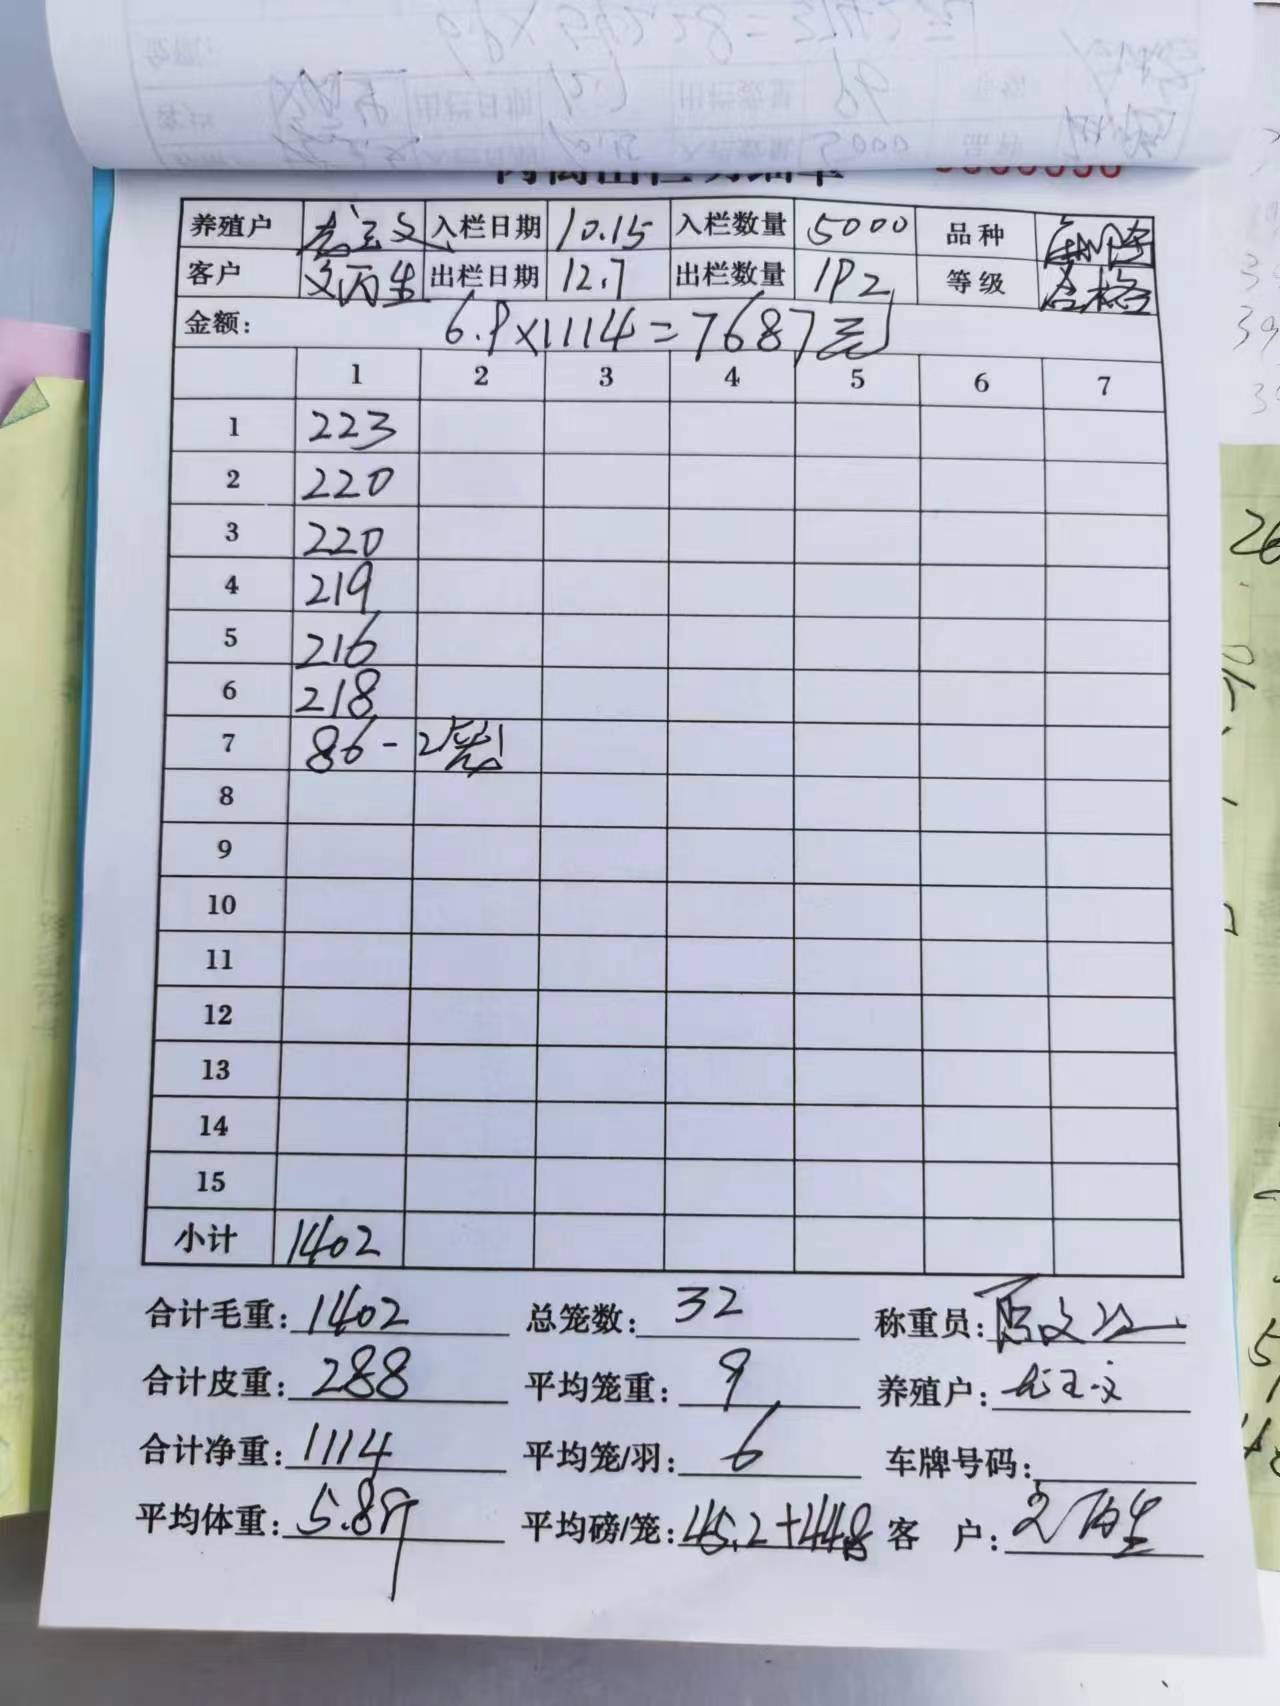 养殖户 龙玉文 入栏日期 10.15 入栏数量 5000 品种
客户 文丙生 出栏日期 12.7 出栏数量 192 等级 合格
金额: 6.9×1114=7687元
1 2 3 4 5 6 7
1 223
2 220
3 220
4 219
5 216
6 218
7 86-2
8
9
10
11
12
13
14
15
小计 1402
合计毛重: 1402 总笼数: 32 称重员:
合计皮重: 288 平均笼重: 9 养殖户: 龙玉文
合计净重: 1114 平均笼/羽: 6 车牌号码:
平均体重: 5.8斤 平均磅/笼: 45.2+44.8 客 户: 文丙生